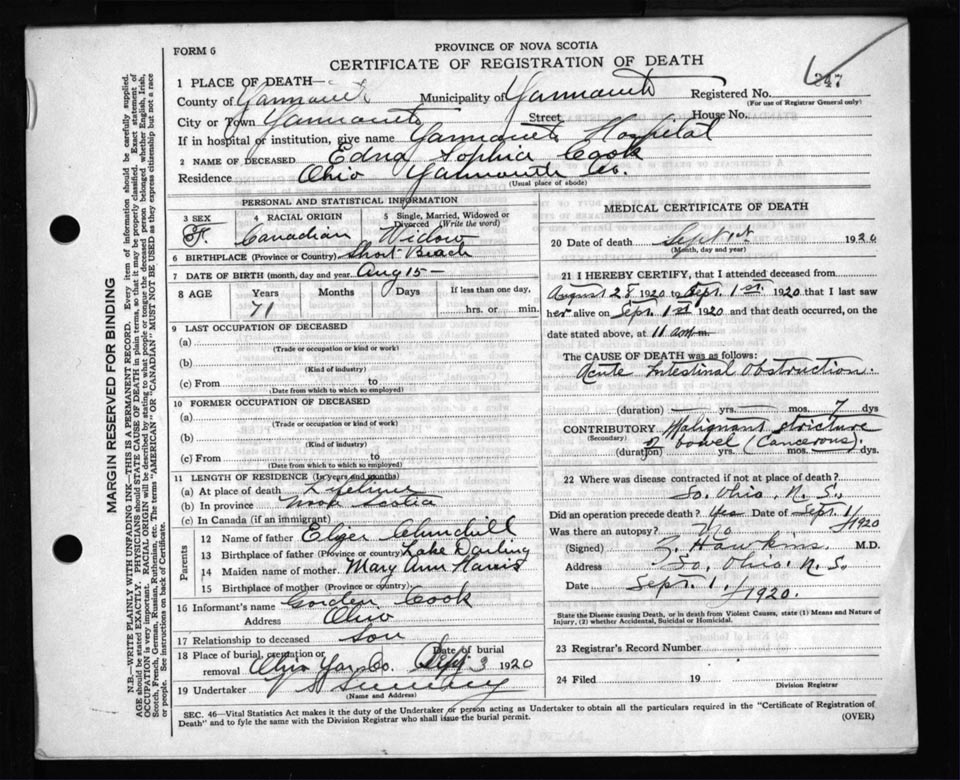 PROVINCE OF NOVA SCOTIA
FORM 6
CERTIFICATE OF REGISTRATION OF DEATH
247
1 PLACE OF DEATH—
County of Yarmouth Municipality of Yarmouth Registered No.
(For use of Registrar General only)
City or Town Yarmouth Street House No.
If in hospital or institution, give name Yarmouth Hospital
2 NAME OF DECEASED Edna Sophia Cook
Residence Ohio Yarmouth Co.
(Usual place of abode)
PERSONAL AND STATISTICAL INFORMATION
3 SEX 4 RACIAL ORIGIN 5 Single, Married, Widowed or Divorced (Write the word)
F. Canadian Widow
6 BIRTHPLACE (Province or Country) Short Beach
7 DATE OF BIRTH (month, day and year) Aug 15 —
8 AGE Years Months Days If less than one day,
71 hrs. or min.
9 LAST OCCUPATION OF DECEASED
(a)
(Trade or occupation or kind or work)
(b)
(Kind of industry)
(c) From to
(Date from which to which so employed)
10 FORMER OCCUPATION OF DECEASED
(a)
(Trade or occupation or kind of work)
(b)
(Kind of industry)
(c) From to
(Date from which to which so employed)
11 LENGTH OF RESIDENCE (In years and months)
(a) At place of death Lifetime
(b) In province Nova Scotia
(c) In Canada (if an immigrant)
Parents
12 Name of father Churchill
13 Birthplace of father (Province or country) Lake Darling
14 Maiden name of mother Mary Ann Harris
15 Birthplace of mother (Province or country)
16 Informant's name Gorden Cook
Address Ohio
17 Relationship to deceased Son
18 Place of burial, cremation or removal Ohio Yar. Co. Date of burial Sept 3 1920
19 Undertaker Sweeney
(Name and Address)
MEDICAL CERTIFICATE OF DEATH
20 Date of death Sept 1st 1920
(Month, day and year)
21 I HEREBY CERTIFY, that I attended deceased from
August 28 1920 to Sept. 1st. 1920 that I last saw
her alive on Sept. 1st 1920 and that death occurred, on the
date stated above, at 11 a.m.
The CAUSE OF DEATH was as follows:
Acute Intestinal Obstruction.
(duration) yrs. mos. 7 dys
CONTRIBUTORY Malignant stricture
(Secondary) of bowel (Cancerous).
(duration) yrs. mos. dys.
22 Where was disease contracted if not at place of death?
So. Ohio. N. S.
Did an operation precede death? Yes Date of Sept. 1/1920
Was there an autopsy? No
(Signed) Hawkins. M.D.
Address So. Ohio. N. S.
Date Sept. 1./1920.
State the Disease causing Death, or in death from Violent Causes, state (1) Means and Nature of
Injury, (2) whether Accidental, Suicidal or Homicidal.
23 Registrar's Record Number
24 Filed 19
Division Registrar
SEC. 46—Vital Statistics Act makes it the duty of the Undertaker or person acting as Undertaker to obtain all the particulars required in the "Certificate of Registration of
Death" and to fyle the same with the Division Registrar who shall issue the burial permit.
(OVER)
MARGIN RESERVED FOR BINDING
N.B.—WRITE PLAINLY WITH UNFADING INK—THIS IS A PERMANENT RECORD. Every item of information should be carefully supplied.
AGE should be stated EXACTLY. PHYSICIANS should STATE CAUSE OF DEATH in plain terms, so that it may be properly classified. Exact statement of
OCCUPATION is very important. RACIAL ORIGIN will be described by stating to what people or tongue the deceased person belonged whether English, Irish,
Scotch, French, German, Russian, Ruthenian, etc. The terms "AMERICAN" or "CANADIAN" MUST NOT BE USED as they express citizenship but not a race
or people. See instructions on back of Certificate.